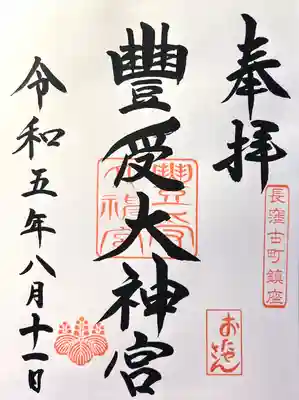 奉拝
長窪古町鎮座
おたやさん
豊受大神宮
豐受大神宮
令和五年八月十一日